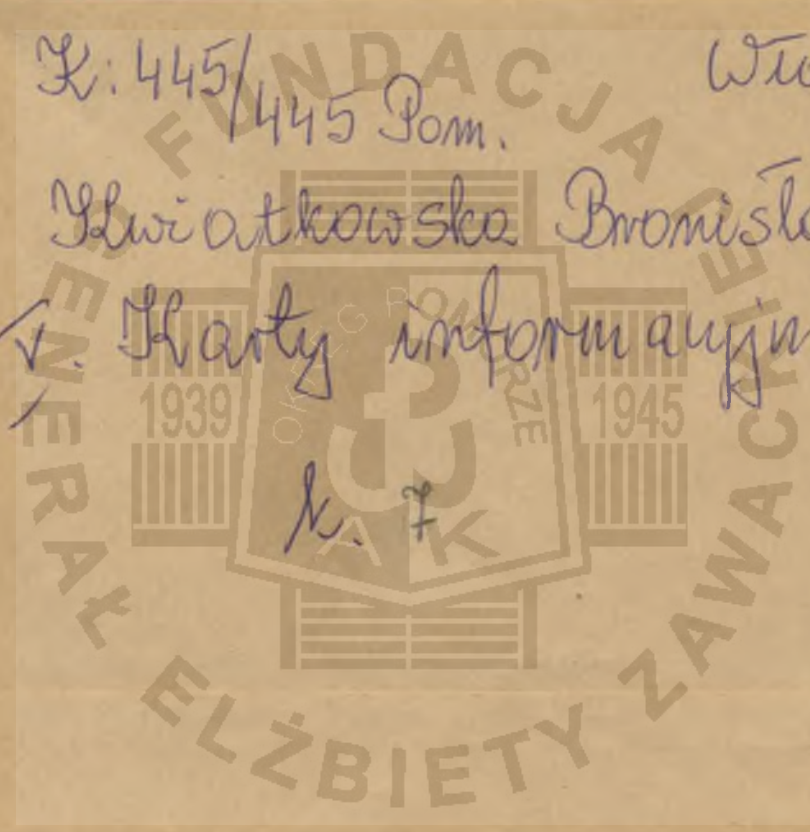 K: 445/445 Pom.
Kwiatkowska Bronisła
V. Karty informacyjn
k. 7
FUNDACJA GENERAŁ ELŻBIETY ZAWACKIEJ
OKRĘG POMORZE
1939
1945
AK